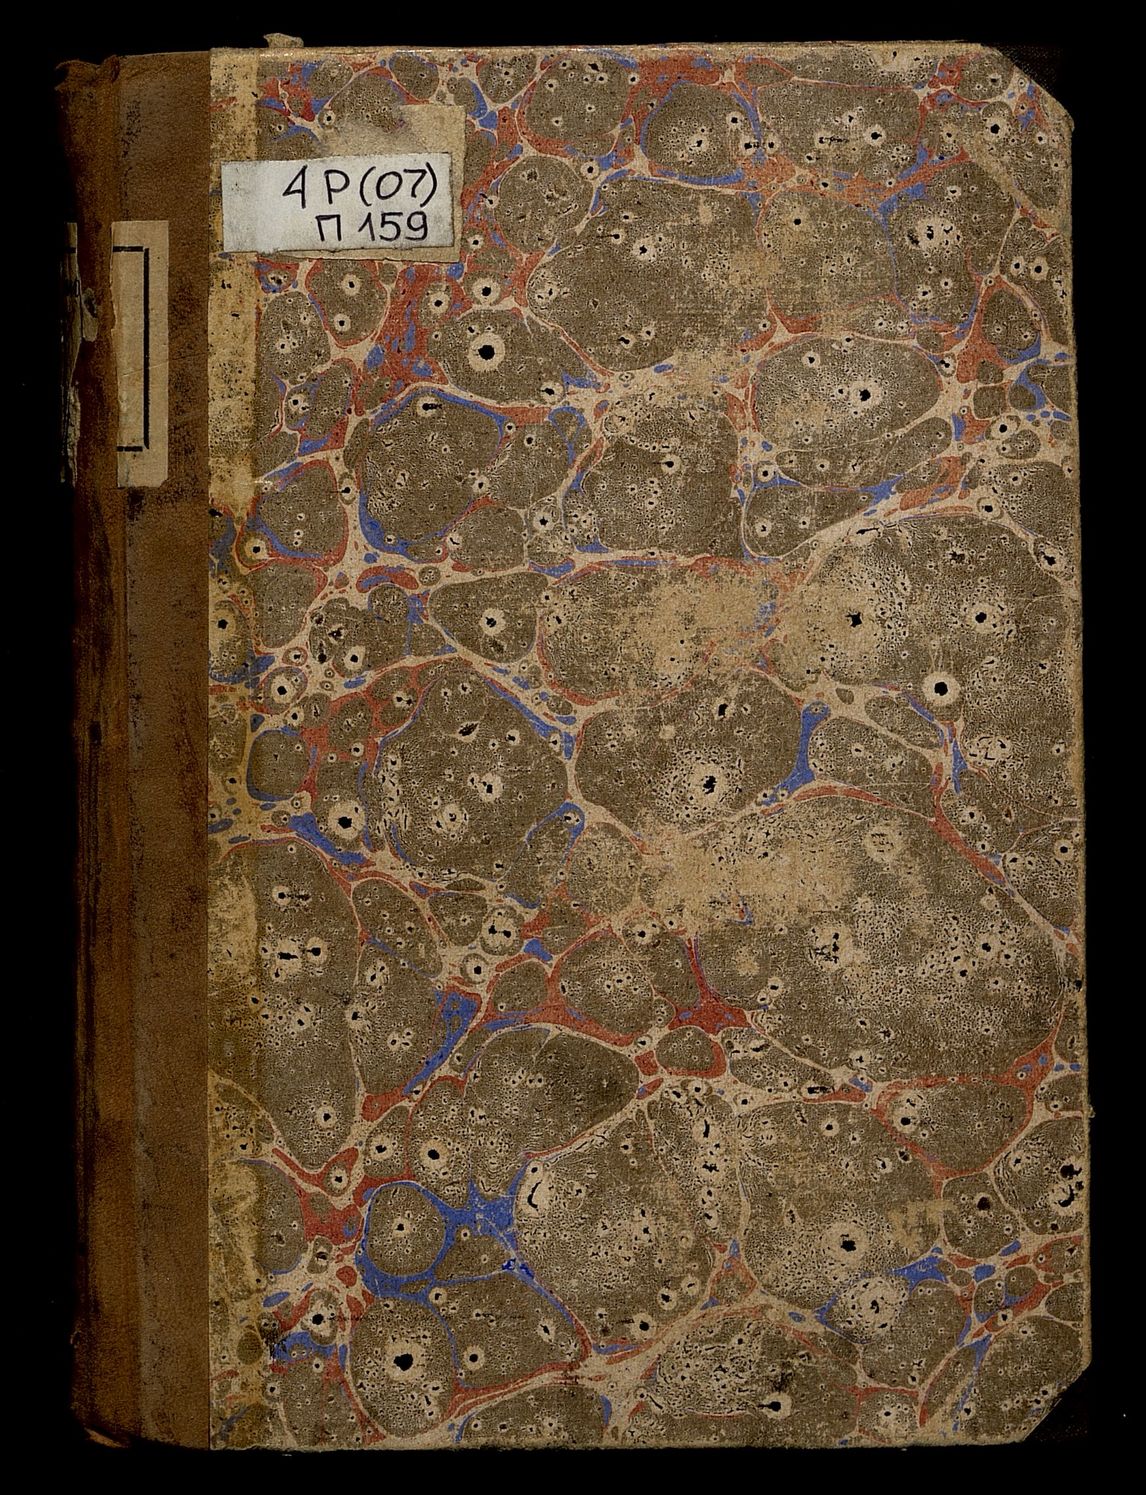 4Р(07)
П 159